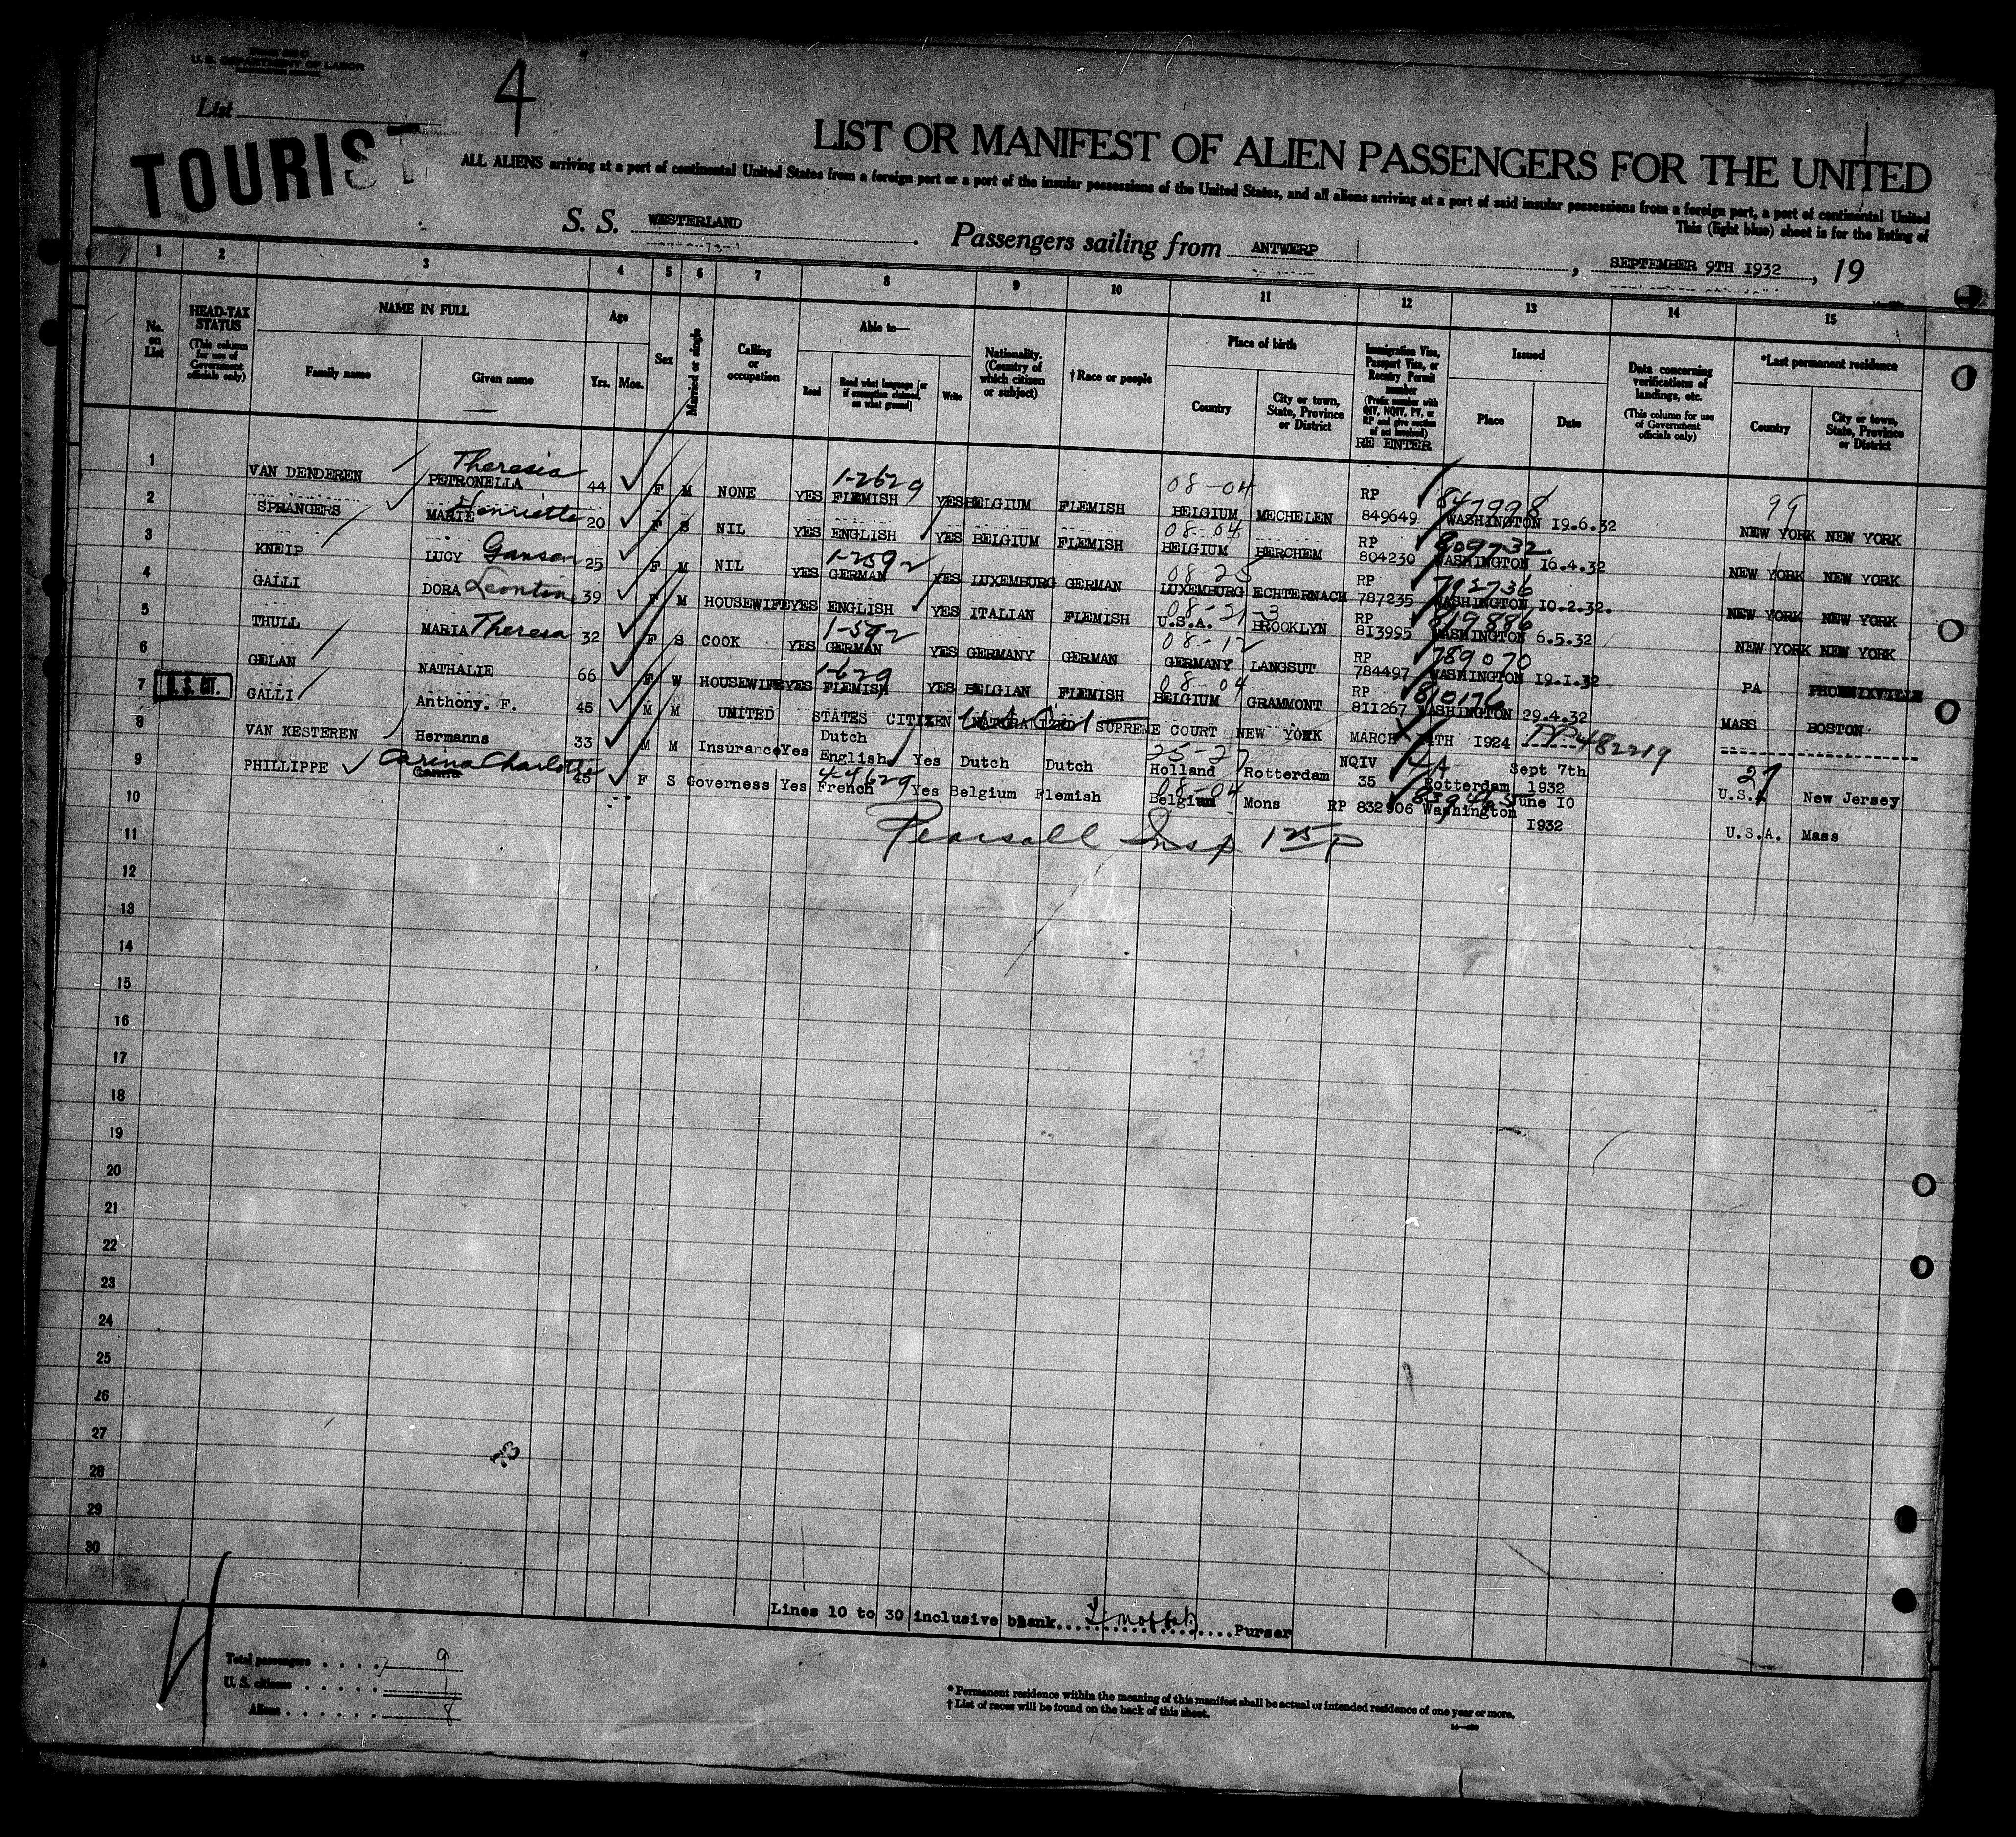 U. S. DEPARTMENT OF LABOR
List
4
TOURIST
LIST OR MANIFEST OF ALIEN PASSENGERS FOR THE UNITED
ALL ALIENS arriving at a port of continental United States from a foreign port or a port of the insular possessions of the United States, and all aliens arriving at a port of said insular possessions from a foreign port, a port of continental United
This (light blue) sheet is for the listing of
S. S. WESTERLAND Passengers sailing from ANTWERP , SEPTEMBER 9TH 1932 , 19
1 2 3 4 5 6 7 8 9 10 11 12 13 14 15
No. on List
HEAD-TAX STATUS (This column for use of Government officials only)
NAME IN FULL
Family name Given name
Age
Yrs. Mos.
Sex
Married or single
Calling or occupation
Able to—
Read Read what language [or if exemption claimed, on what ground] Write
Nationality. (Country of which citizen or subject)
†Race or people
Place of birth
Country City or town, State, Province or District
Immigration Visa, Passport Visa, or Reentry Permit number (Prefix number with QIV, NQIV, PV, or RP and give section of act involved)
RE ENTER
Issued
Place Date
Data concerning verifications of landings, etc. (This column for use of Government officials only)
*Last permanent residence
Country City or town, State, Province or District
1 VAN DENDEREN Theresia PETRONELLA 44 F M NONE YES 1-2629 FLEMISH YES BELGIUM FLEMISH 08-04 BELGIUM MECHELEN RP 849649 847998 WASHINGTON 19.6.32 99 NEW YORK NEW YORK
2 SPRANGERS MARIE Henriette 20 F S NIL YES ENGLISH YES BELGIUM FLEMISH 08-04 BELGIUM BERCHEM RP 804230 809732 WASHINGTON 16.4.32 NEW YORK NEW YORK
3 KNEIP LUCY Ganser 25 F M NIL YES 1-2592 GERMAN YES LUXEMBURG GERMAN 08-25 LUXEMBURG ECHTERNACH RP 787235 792736 WASHINGTON 10.2.32. NEW YORK NEW YORK
4 GALLI DORA Leontine 39 F M HOUSEWIFE YES ENGLISH YES ITALIAN FLEMISH 08-21-3 U.S.A. BROOKLYN RP 813995 819886 WASHINGTON 6.5.32 NEW YORK NEW YORK
5 THULL MARIA Theresa 32 F S COOK YES 1-592 GERMAN YES GERMANY GERMAN 08-12 GERMANY LANGSUT RP 784497 789070 WASHINGTON 19.1.32 PA PHOENIXVILLE
6 GELAN NATHALIE 66 F W HOUSEWIFE YES 1-629 FLEMISH YES BELGIAN FLEMISH 08-04 BELGIUM GRAMMONT RP 811267 810176 WASHINGTON 29.4.32 MASS BOSTON
7 U. S. CIT. GALLI Anthony. F. 45 M M UNITED STATES CITIZEN NATURALIZED SUPREME COURT NEW YORK MARCH 14TH 1924 PP 482219
8 VAN KESTEREN Hermanns 33 M M Insurance Yes Dutch English Yes Dutch Dutch 25-27 Holland Rotterdam NQIV 35 4A Rotterdam Sept 7th 1932 27 U.S.A New Jersey
9 PHILLIPPE Carina Charlotte 45 F S Governess Yes 44629 French Yes Belgium Flemish 08-04 Belgium Mons RP 832906 Washington June 10 1932 U.S.A. Mass
10
Pearsall Insp 125P
11
12
13
14
15
16
17
18
19
20
21
22
23
24
25
26
27
28
29
30
Lines 10 to 30 inclusive blank Purser
Total passengers 9
U. S. citizens 1
Aliens 8
* Permanent residence within the meaning of this manifest shall be actual or intended residence of one year or more.
† List of races will be found on the back of this sheet.